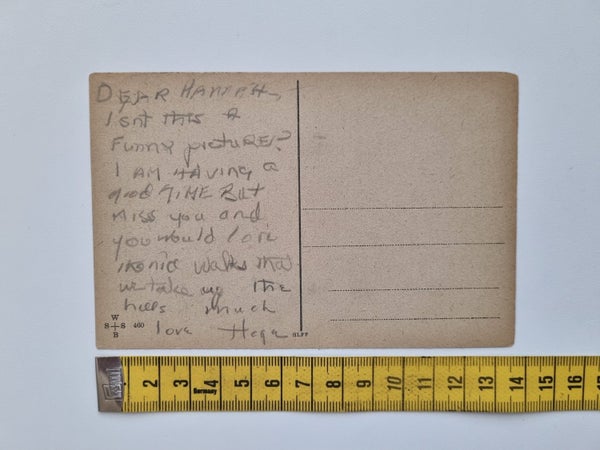 DEAR HANNAH,
Isnt this a
Funny picture?
I AM HAVING a
good TIME But
miss you and
you would love
walks that
we take up the
hills much
love
W
S S 460
B
GLFF
Germany
2 3 4 5 6 7 8 9 10 11 12 13 14 15 16